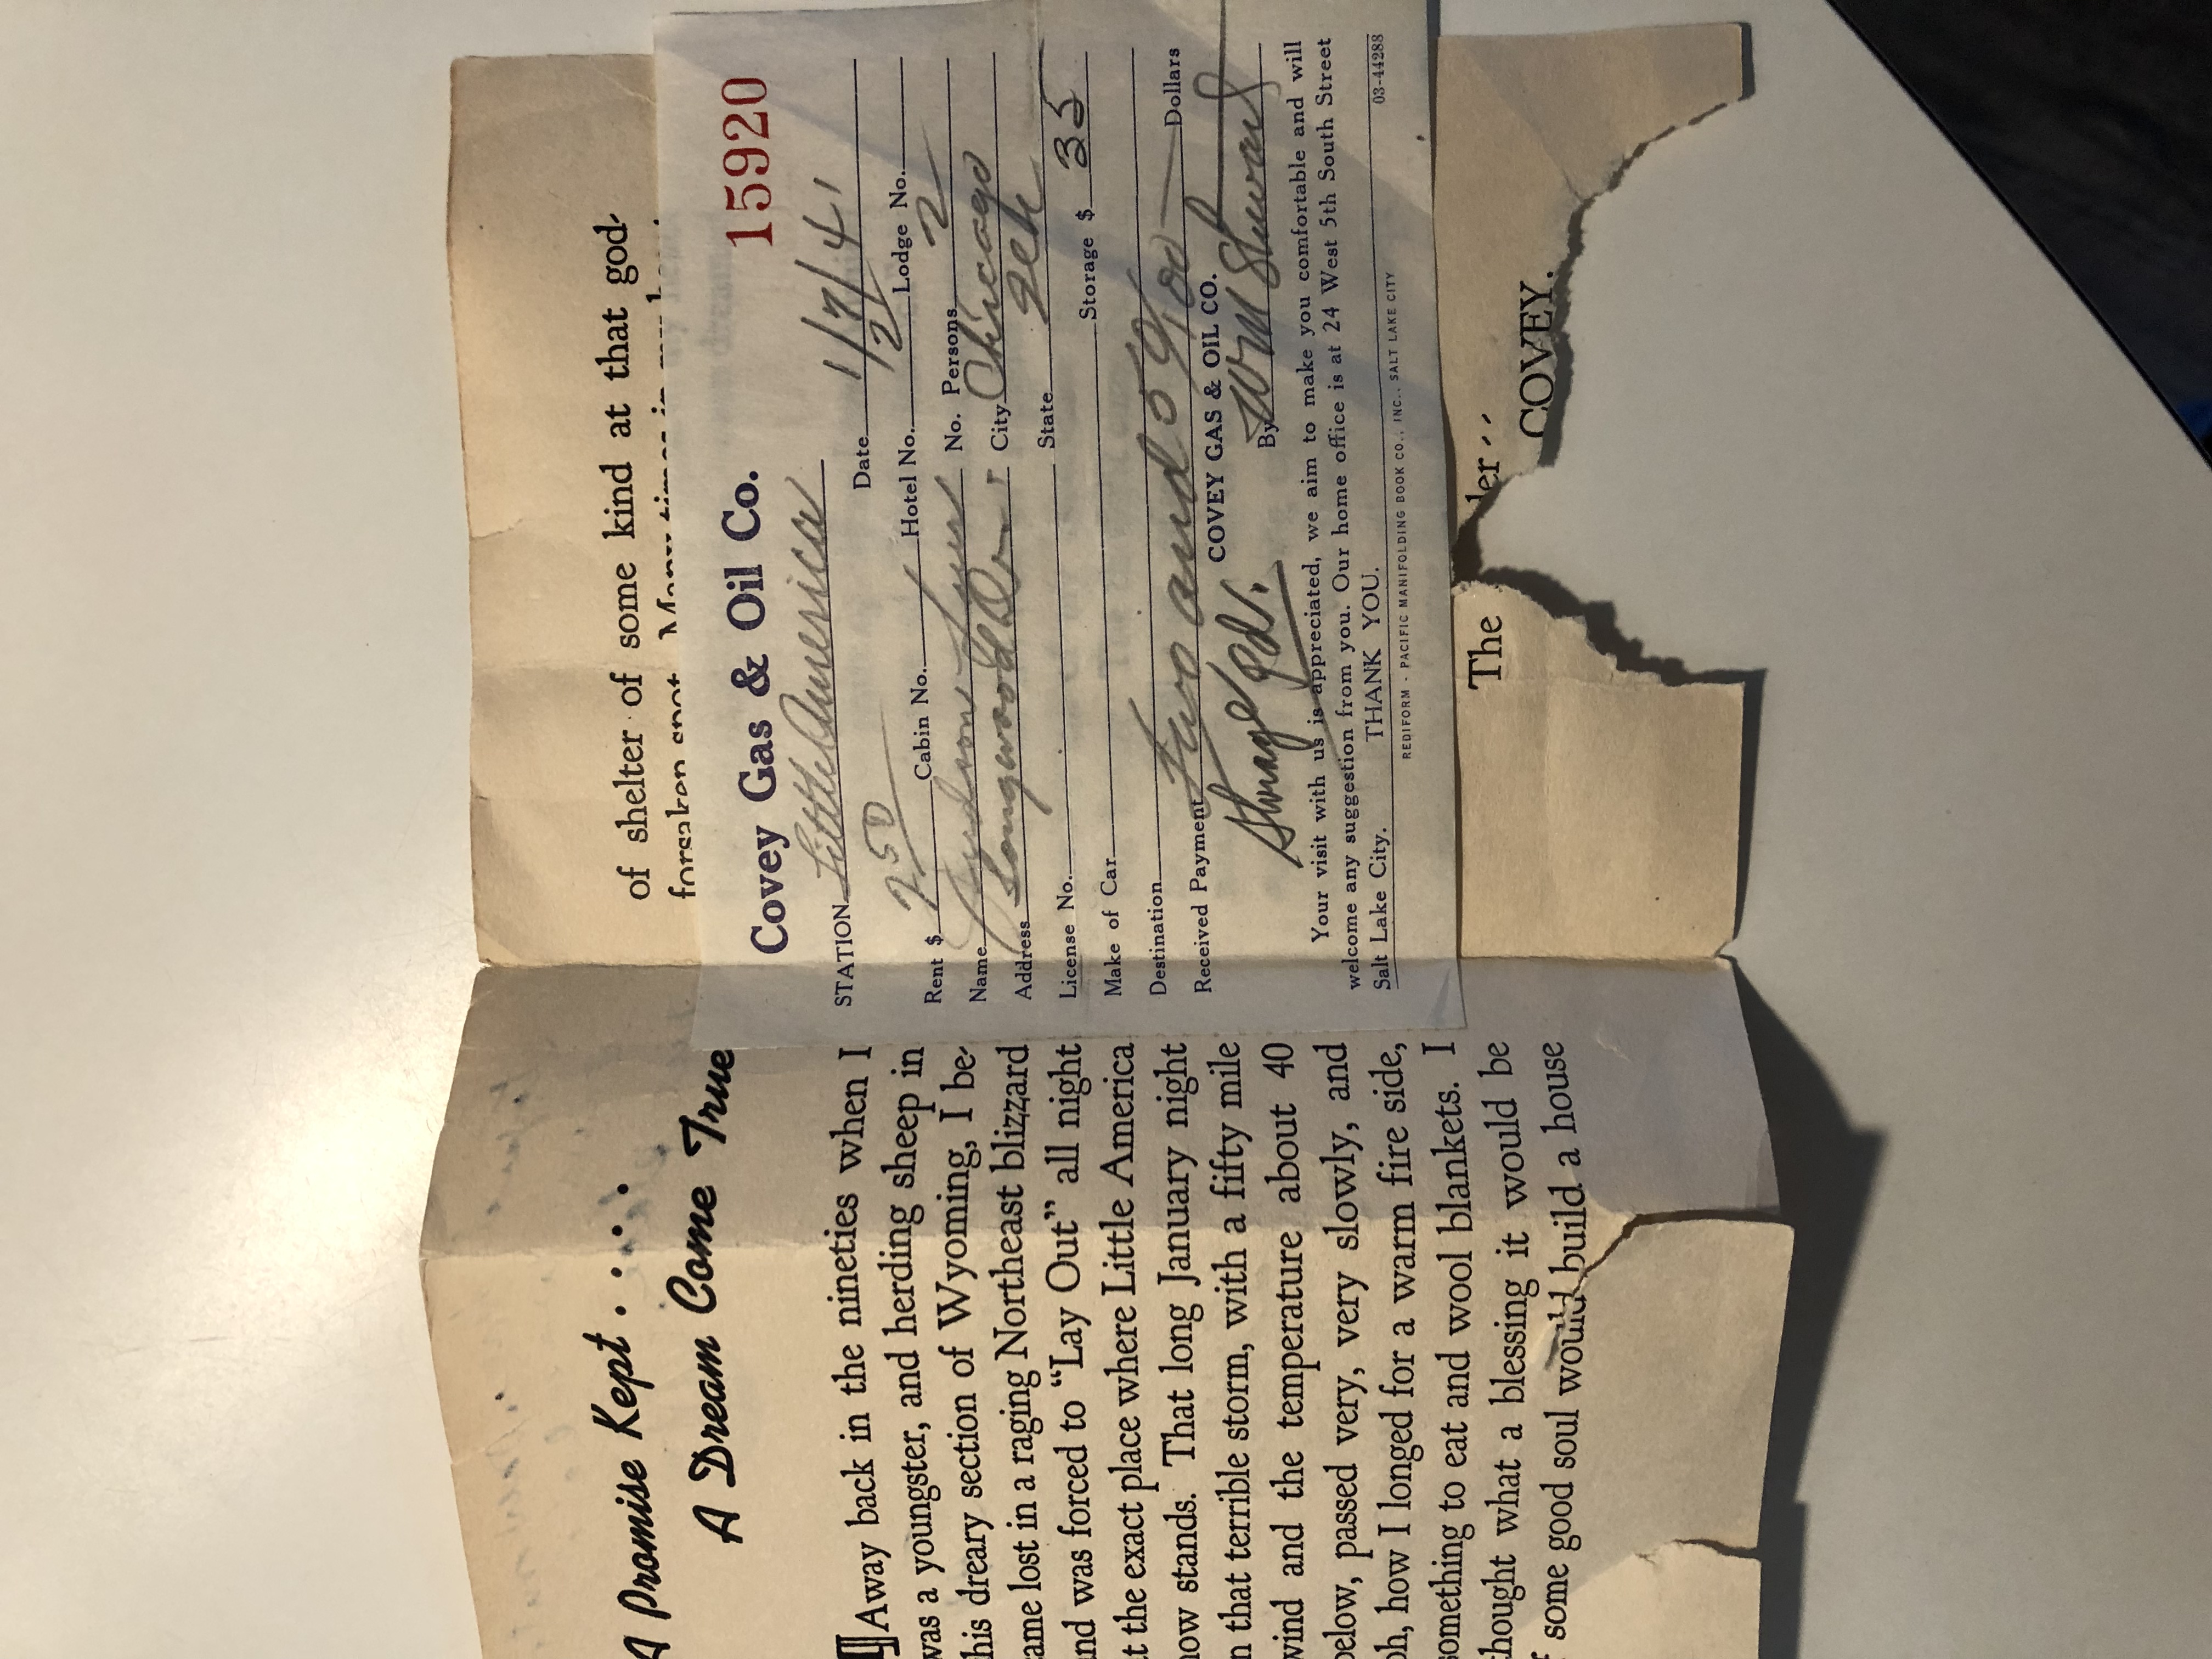 A Promise Kept . . . .
A Dream Come True
Away back in the nineties when I
was a youngster, and herding sheep in
this dreary section of Wyoming, I be-
came lost in a raging Northeast blizzard
and was forced to "Lay Out" all night
at the exact place where Little America
now stands. That long January night
in that terrible storm, with a fifty mile
wind and the temperature about 40
below, passed very, very slowly, and
oh, how I longed for a warm fire side,
something to eat and wool blankets. I
thought what a blessing it would be
if some good soul would build a house
of shelter of some kind at that god-
forsaken spot. Many times in my
Covey Gas & Oil Co. 15920
STATION Little America
Date 1/7/41
Rent $ 2.50 Cabin No. Hotel No. 2 Lodge No.
Name No. Persons 2
Address Longwood Dr. City Chicago
License No. State
Make of Car Storage $ 35
Destination
Received Payment Two and 50/00 Dollars
COVEY GAS & OIL CO.
Storage Pd. By Wm
Your visit with us is appreciated, we aim to make you comfortable and will
welcome any suggestion from you. Our home office is at 24 West 5th South Street
Salt Lake City. THANK YOU.
REDIFORM - PACIFIC MANIFOLDING BOOK CO., INC., SALT LAKE CITY 03-44288
The
COVEY.